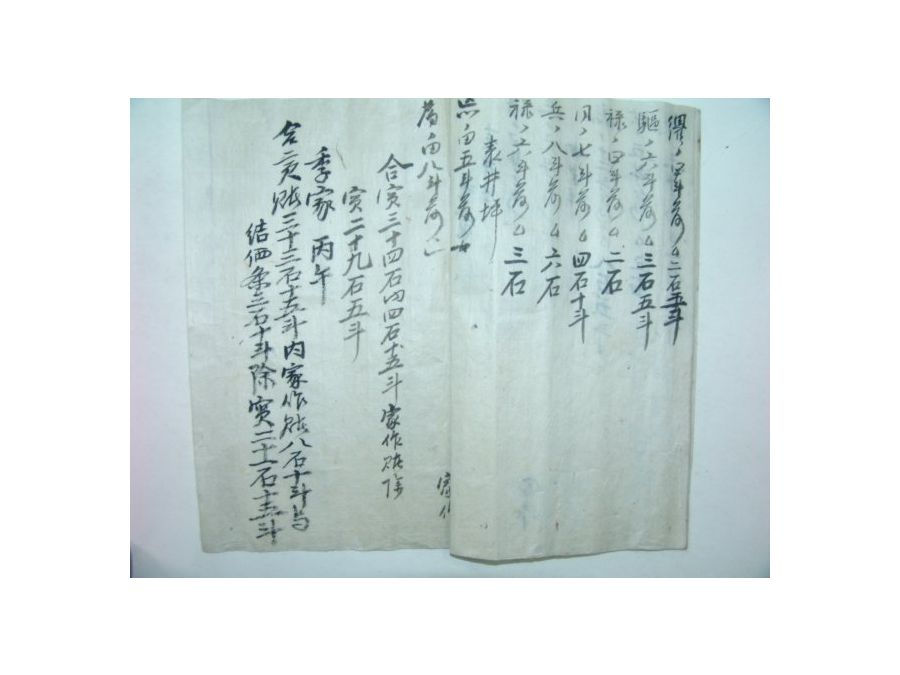 四斗落 二石五斗
驅 六斗落 三石五斗
祿 四斗落 二石
同 七斗落 四石十斗
兵 八斗落 六石
祿 六斗落 三石
表井坪
畓五斗落
畓八斗落
合實三十四石內四石十五斗家作除
實二十九石五斗
季家 丙午
合實賭三十三石十五斗內家作賭八石十斗与
結価條三石十斗除實二十一石十五斗
家作